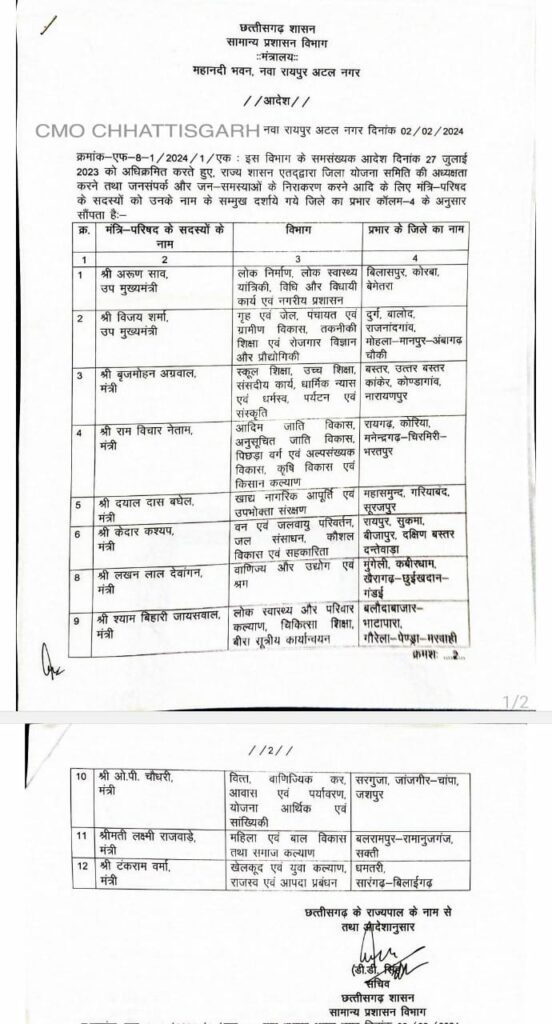 छत्तीसगढ़ शासन
सामान्य प्रशासन विभाग
::मंत्रालय::
महानदी भवन, नवा रायपुर अटल नगर
//आदेश//
CMO CHHATTISGARH
नवा रायपुर अटल नगर दिनांक 02/02/2024
क्रमांक-एफ-8-1/2024/1/एक : इस विभाग के समसंख्यक आदेश दिनांक 27 जुलाई
2023 को अधिक्रमित करते हुए, राज्य शासन एतद्द्वारा जिला योजना समिति की अध्यक्षता
करने तथा जनसंपर्क और जन-समस्याओं के निराकरण करने आदि के लिए मंत्रि-परिषद
के सदस्यों को उनके नाम के सम्मुख दर्शाये गये जिले का प्रभार कॉलम-4 के अनुसार
सौंपता है:-
क्र. मंत्रि-परिषद के सदस्यों के विभाग प्रभार के जिले का नाम
नाम
1 2 3 4
1 श्री अरूण साव, लोक निर्माण, लोक स्वास्थ्य बिलासपुर, कोरबा,
उप मुख्यमंत्री यांत्रिकी, विधि और विधायी बेमेतरा
कार्य एवं नगरीय प्रशासन
2 श्री विजय शर्मा, गृह एवं जेल, पंचायत एवं दुर्ग, बालोद,
उप मुख्यमंत्री ग्रामीण विकास, तकनीकी राजनांदगांव,
शिक्षा एवं रोजगार विज्ञान मोहला-मानपुर-अंबागढ़
और प्रौद्योगिकी चौकी
3 श्री बृजमोहन अग्रवाल, स्कूल शिक्षा, उच्च शिक्षा, बस्तर, उत्तर बस्तर
मंत्री संसदीय कार्य, धार्मिक न्यास कांकेर, कोण्डागांव,
एवं धर्मस्व, पर्यटन एवं नारायणपुर
संस्कृति
4 श्री राम विचार नेताम, आदिम जाति विकास, रायगढ़, कोरिया,
मंत्री अनुसूचित जाति विकास, मनेन्द्रगढ़-चिरमिरी-
पिछड़ा वर्ग एवं अल्पसंख्यक भरतपुर
विकास, कृषि विकास एवं
किसान कल्याण
5 श्री दयाल दास बघेल, खाद्य नागरिक आपूर्ति एवं महासमुन्द, गरियाबंद,
मंत्री उपभोक्ता संरक्षण सूरजपुर
6 श्री केदार कश्यप, वन एवं जलवायु परिवर्तन, रायपुर, सुकमा,
मंत्री जल संसाधन, कौशल बीजापुर, दक्षिण बस्तर
विकास एवं सहकारिता दन्तेवाड़ा
8 श्री लखन लाल देवांगन, वाणिज्य और उद्योग एवं मुंगेली, कबीरधाम,
मंत्री श्रम खैरागढ़-छुईखदान-
गंडई
9 श्री श्याम बिहारी जायसवाल, लोक स्वास्थ्य और परिवार बलौदाबाजार-
मंत्री कल्याण, चिकित्सा शिक्षा, भाटापारा,
बीस सूत्रीय कार्यान्वयन गौरेला-पेण्ड्रा-मरवाही
क्रमशः ...2...
1/2
//2//
10 श्री ओ.पी. चौधरी, वित्त, वाणिज्यिक कर, सरगुजा, जांजगीर-चांपा,
मंत्री आवास एवं पर्यावरण, जशपुर
योजना आर्थिक एवं
सांख्यिकी
11 श्रीमती लक्ष्मी राजवाड़े, महिला एवं बाल विकास बलरामपुर-रामानुजगंज,
मंत्री तथा समाज कल्याण सक्ती
12 श्री टंकराम वर्मा, खेलकूद एवं युवा कल्याण, धमतरी,
मंत्री राजस्व एवं आपदा प्रबंधन सारंगढ़-बिलाईगढ़
छत्तीसगढ़ के राज्यपाल के नाम से
तथा आदेशानुसार
(डी.डी. सिंह)
सचिव
छत्तीसगढ़ शासन
सामान्य प्रशासन विभाग